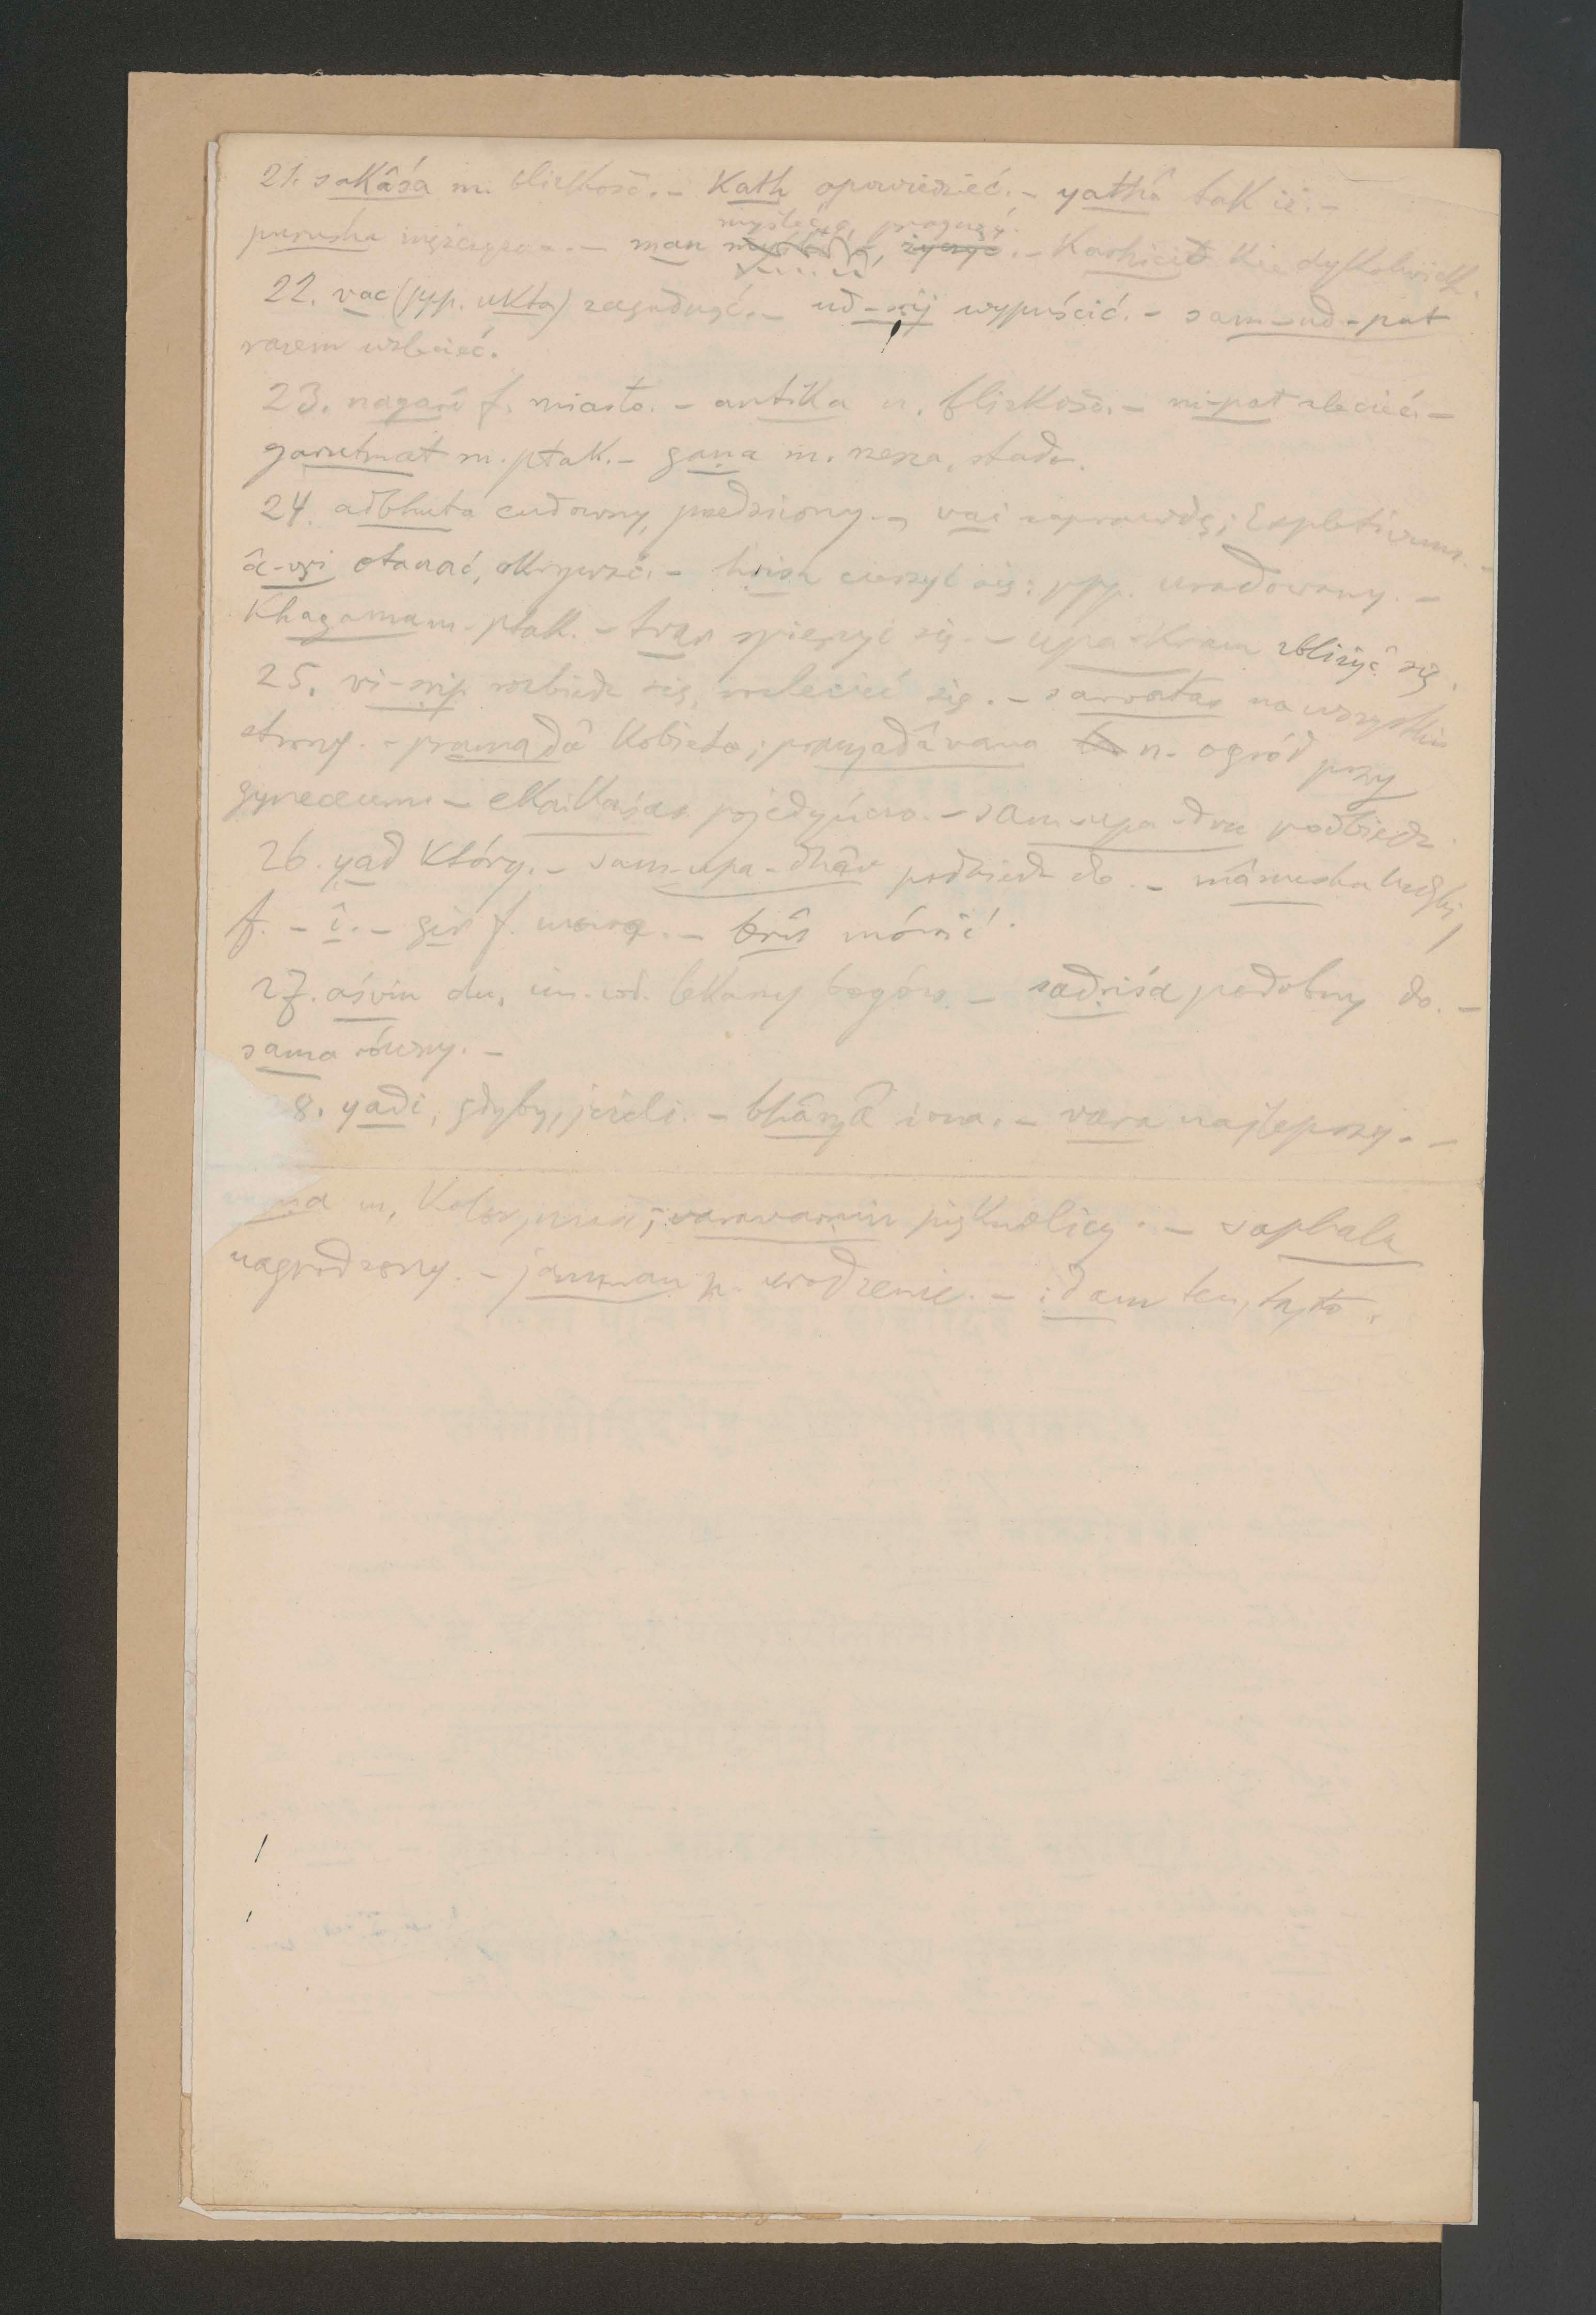 21. sakâśa m. blizkość. – Kath opowiedzieć. – yathâ tak iż. –
myśleć o, pragnąć.
purusha mężczyzna. – man życzyć. – Karhicid Kiedykolwiek.
22. vac (ppp. ukta) zagadnąć. – ud-sṛij wypuścić. – sam-ud-pat
razem wzlecieć.
23. nagarî f. miasto. – antika n. blizkość. – ni-pat zlecieć. –
garutmat m. ptak. – gaṇa m. rzesza, stado.
24. adbhuta cudowny, przedziwny. – vai zaprawdę; Expletivum. –
â-vṛi otaczać, okrywać. – hṛish cieszyć się; ppp. uradowany. –
Khagama m. ptak. – tvar spieszyć się. – upa-kram zbliżyć się.
25. vi-sṛip rozbiedz się, rozlecieć się. – sarvatas na wszystkie
strony. – pramadâ Kobieta; pramadâvana n. ogród przy
gyneceum. – ekaikaśas pojedyńczo. – sam-upa-dru podbiedz.
26. yad Który. – sam-upa-dhâv podbiedz do. – mânusha ludzki,
f. – î. – gir f. mowa. – brû mówić.
27. aśvin du. lekarzy bogów. – sadṛiśa podobny do. –
sama równy. –
8. yadi, gdyby, jeżeli. – bhâryâ żona. – vara najlepszy. –
ṇa m. Kolor, ; varavarṇin pięknolicy. – saphala
nagrodzony. – janman n. urodzenie. – idam ten, ta, to.